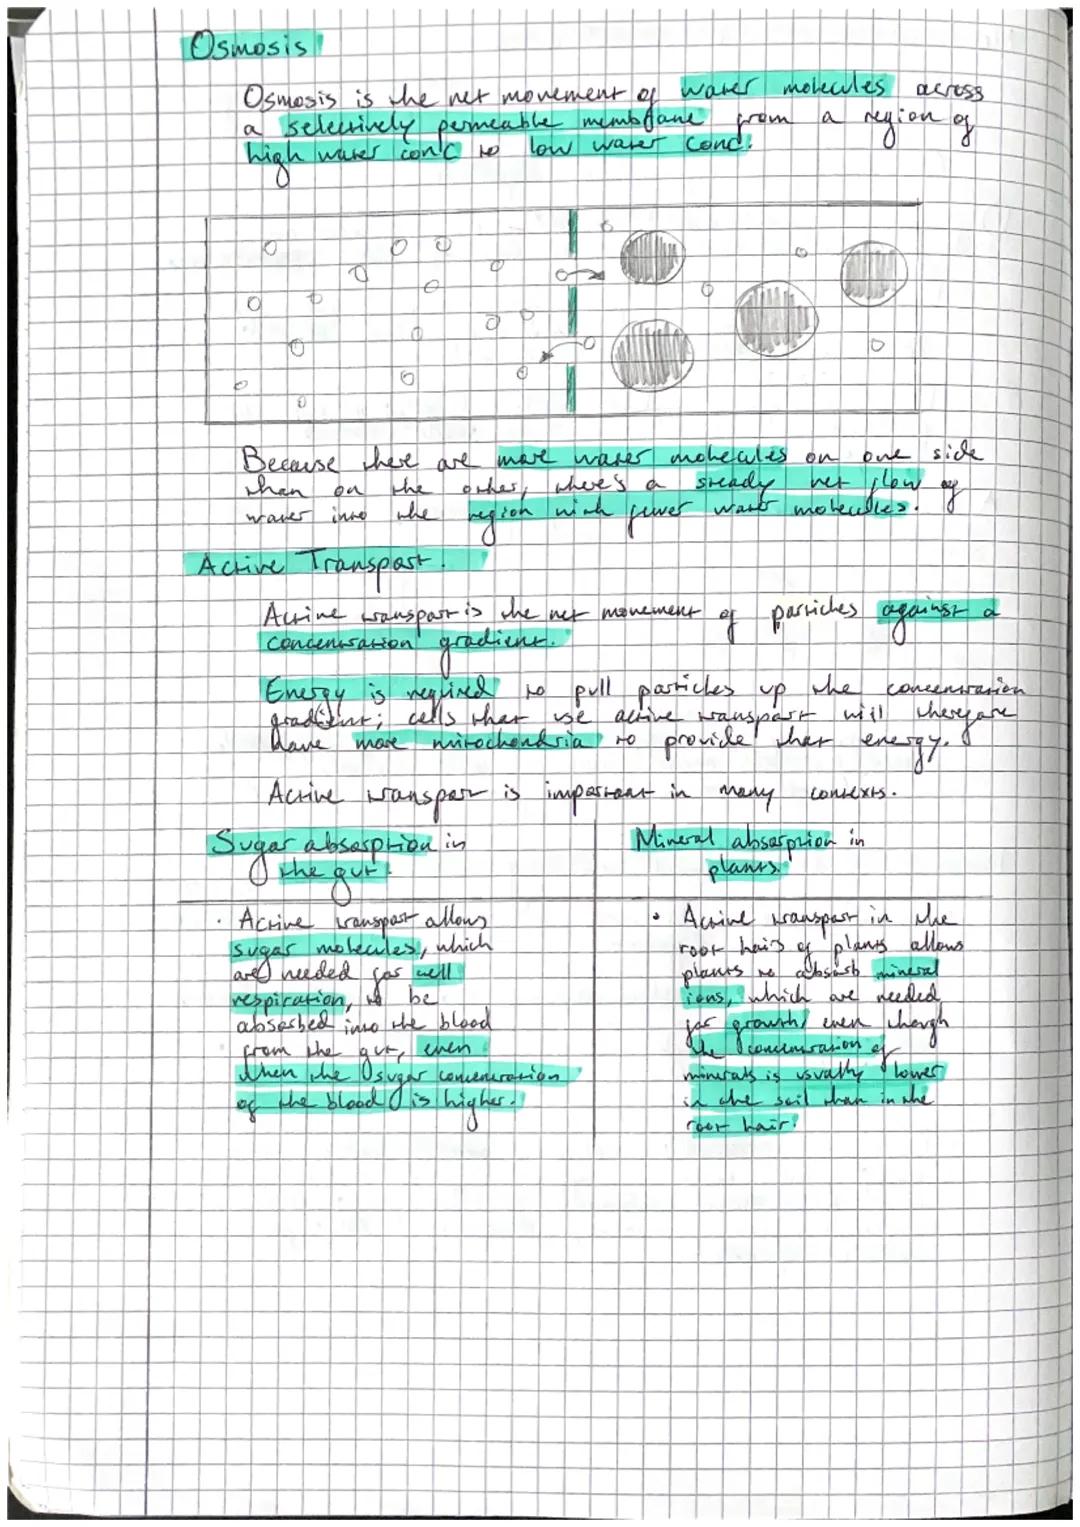 Osmosis
Osmosis is the net movement of water molecules across
a selectively permeable membrane from a region of
high water conc to low water conc.
Because there are more water molecules on one side
than on the other, there's a steady net flow of
water into the region with fewer water molecules.
Active Transport.
Active transport is the net movement of particles against a
concentration gradient.
Energy is required to pull particles up the concentration
gradient; cells that use active transport will therefore
have more mitochondria to provide that energy.
Active transport is important in many contexts.
Sugar absorption in
the gut.
· Active transport allows
sugar molecules, which
are needed for cell
respiration, to be
absorbed into the blood
from the gut, even
when the sugar concentration
of the blood is higher.
Mineral absorption in
plants.
• Active transport in the
root hairs of plants allows
plants to absorb mineral
ions, which are needed
for growth, even though
the concentration of
minerals is usually lower
in the soil than in the
root hair.